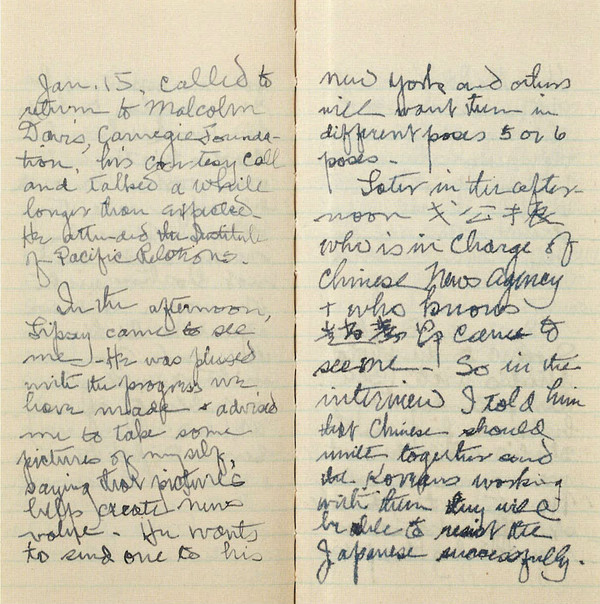 Jan. 15, called to
return to Malcolm
Davis, Carnegie Founda-
tion, his courtesy call
and talked a while
longer than expected.
He attended the Institute
of Pacific Relations.
In the afternoon,
Lipsay came to see
me - He was pleased
with the progress we
have made & advised
me to take some
pictures of myself,
saying that pictures
help create news
value. He wants
to send one to his
New York and others
will want them in
different poses 5 or 6
poses.
Later in the after-
noon 公
who is in charge of
Chinese News Agency
+ who knows
came to
see me. So in the
interview I told him
that Chinese should
unite together and
the Koreans working
with them they will
be able to resist the
Japanese successfully.